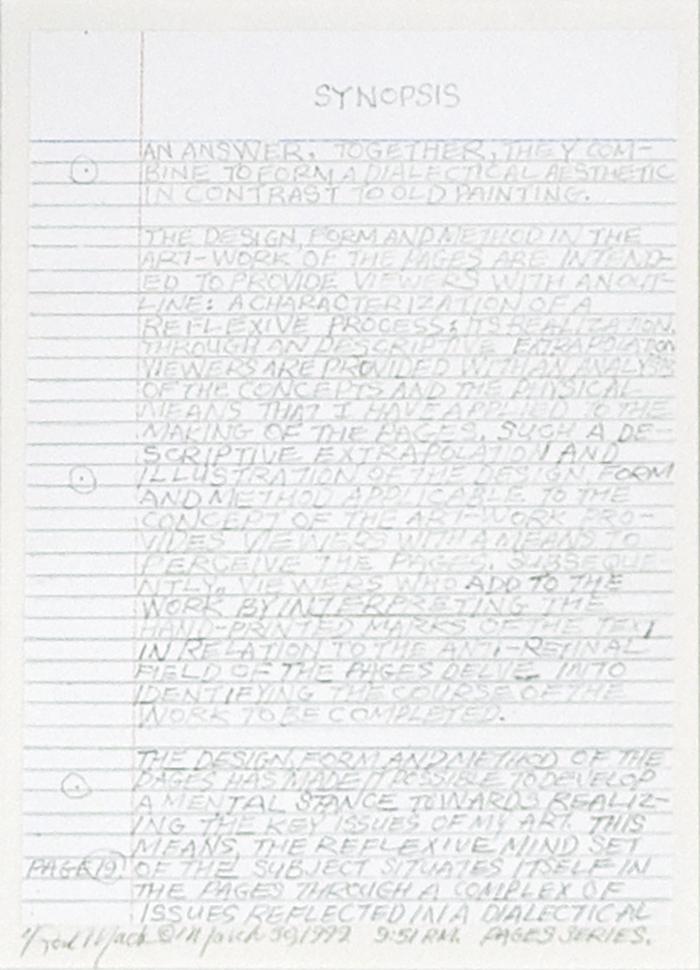 SYNOPSIS
AN ANSWER. TOGETHER, THEY COM-
BINE TO FORM A DIALECTICAL AESTHETIC
IN CONTRAST TO OLD PAINTING.
THE DESIGN, FORM AND METHOD IN THE
ART-WORK OF THE PAGES ARE INTEND-
ED TO PROVIDE VIEWERS WITH AN OUT-
LINE: A CHARACTERIZATION OF A
REFLEXIVE PROCESS: ITS REALIZATION.
THROUGH AN DESCRIPTIVE EXTRAPOLATION
VIEWERS ARE PROVIDED WITH AN ANALYSIS
OF THE CONCEPTS AND THE PHYSICAL
MEANS THAT I HAVE APPLIED TO THE
MAKING OF THE PAGES. SUCH A DE-
SCRIPTIVE EXTRAPOLATION AND
ILLUSTRATION OF THE DESIGN FORM
AND METHOD APPLICABLE TO THE
CONCEPT OF THE ART-WORK PRO-
VIDES VIEWERS WITH A MEANS TO
PERCEIVE THE PAGES. SUBSEQUE
NTLY, VIEWERS WHO ADD TO THE
WORK BY INTERPRETING THE
HAND-PRINTED MARKS OF THE TEXT
IN RELATION TO THE ANTI-RETINAL
FIELD OF THE PAGES DELVE INTO
IDENTIFYING THE COURSE OF THE
WORK TO BE COMPLETED.
THE DESIGN, FORM AND METHOD OF THE
PAGES HAS MADE IT POSSIBLE TO DEVELOP
A MENTAL STANCE TOWARDS REALIZ-
ING THE KEY ISSUES OF MY ART. THIS
MEANS, THE REFLEXIVE MIND SET
PAGE 19. OF THE SUBJECT SITUATES ITSELF IN
THE PAGES THROUGH A COMPLEX OF
ISSUES REFLECTED IN A DIALECTICAL
© March 30, 1992 9:51 P.M. PAGES SERIES.